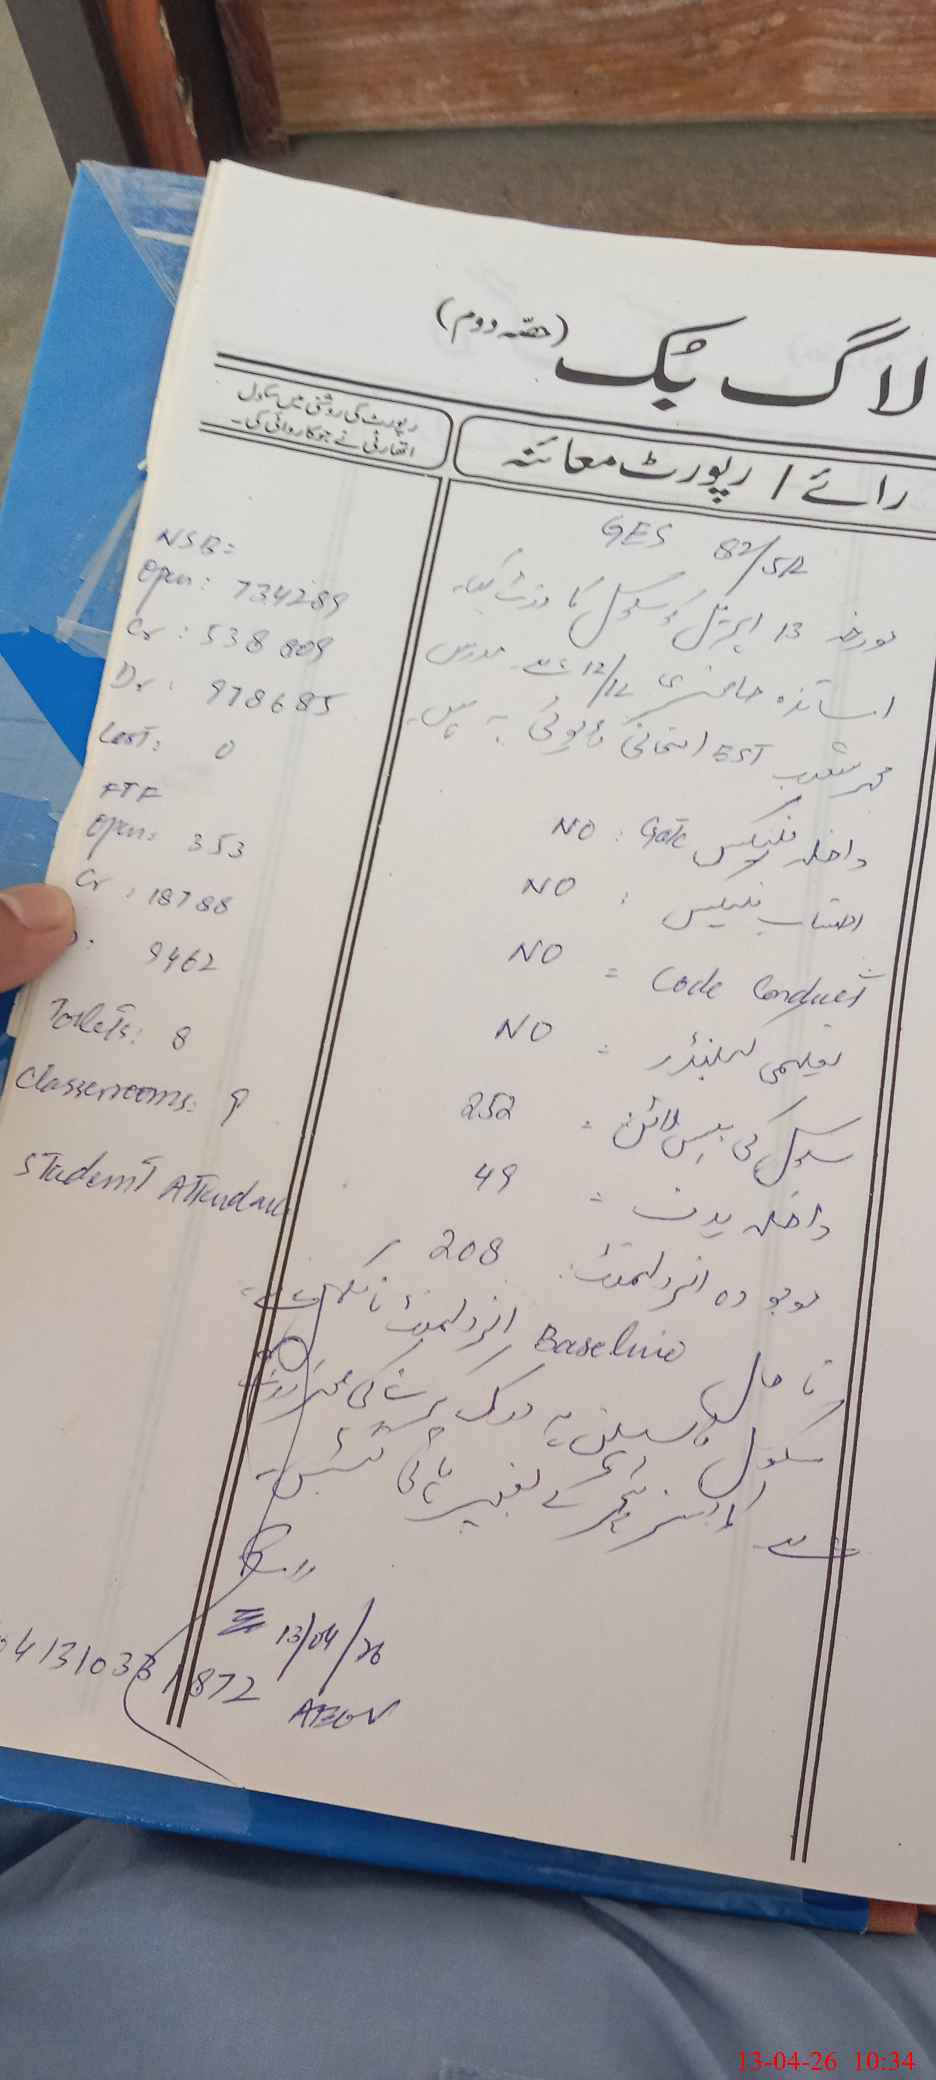 لاگ بُک (حصّہ دوم)
رائے / رپورٹ معائنہ
رپورٹ کی روشنی میں سکول
اتھارٹی نے جو کاروائی کی۔
GES 82/5R
مورخہ 13 اپریل کو سکول کا وزٹ کیا۔
اساتذہ حاضری 12/12 ہے۔ مدرس
محمد شعیب EST امتحانی ڈیوٹی پہ ہیں۔
داخلہ فلیکس Gate : NO
احتساب فلیکس : NO
Code Conduct = NO
تعلیمی کیلنڈر = NO
سکول کی بیس لائن = 252
داخلہ ہدف = 49
موجودہ انرولمنٹ: 208
تا حال Baseline انرولمنٹ نامکمل ہے۔
سکول
کے بغیر پائی گئیں۔
13/04/26
AEO
NSB:
Open: 734289
Cr: 538809
Dr: 978685
Last: 0
FTF
Open: 353
Cr: 18788
D: 9462
Toilets: 8
Classerrooms: 9
Student Attendance
04131033 1872
13-04-26 10:34